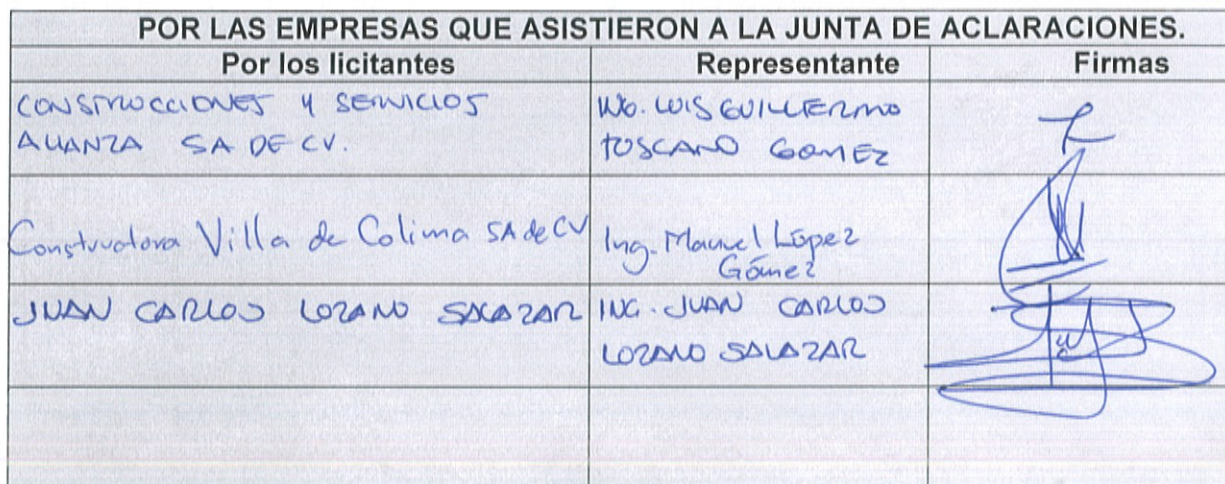 POR LAS EMPRESAS QUE ASISTIERON A LA JUNTA DE ACLARACIONES.
Por los licitantes Representante Firmas
CONSTRUCCIONES Y SERVICIOS
ALIANZA SA DE CV.
ING. LUIS GUILLERMO
TOSCANO GOMEZ
Constructora Villa de Colima SA de CV
Ing. Manuel López
Gómez
JUAN CARLOS LOZANO SALAZAR
ING. JUAN CARLOS
LOZANO SALAZAR